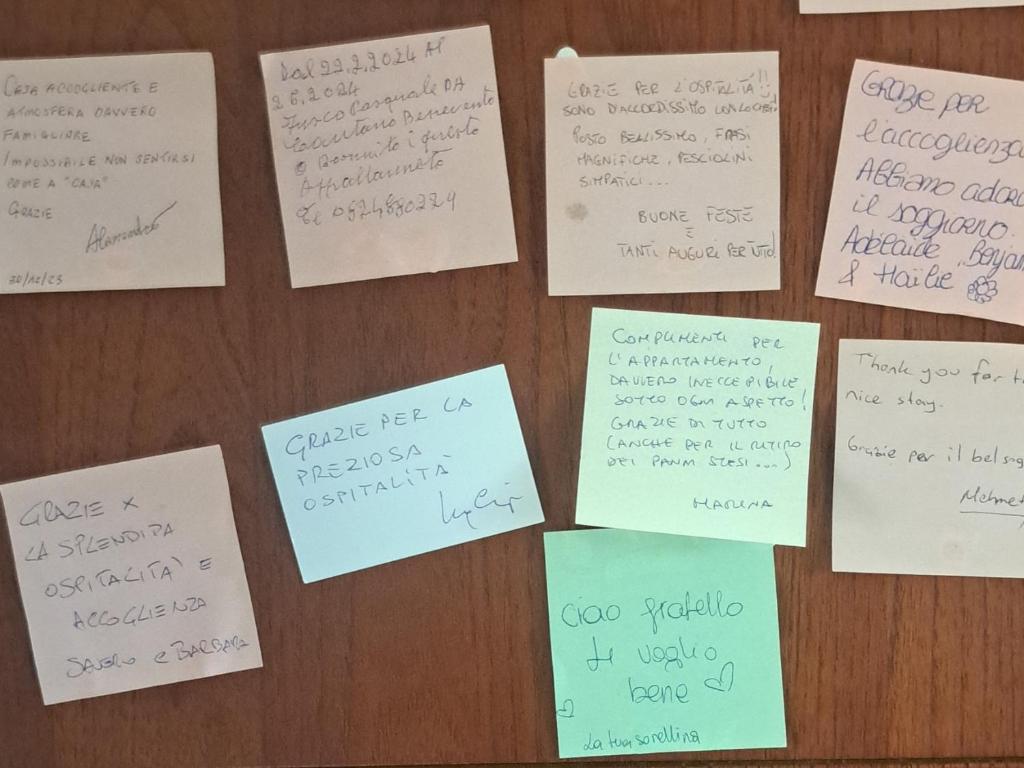 CASA ACCOGLIENTE E
ATMOSFERA DAVVERO
FAMIGLIARE
IMPOSSIBILE NON SENTIRSI
COME A "CASA"
GRAZIE
Alessandro
30/12/23
Dal 22.2.2024 Al
26.2024
Fusco Pasquale DA
Benevento
O Dormito i questo
Appartamento
GRAZIE PER L'OSPITALITÀ!!
SONO D'ACCORDISSIMO CON LO CHEF!
POSTO BELLISSIMO, FRASI
MAGNIFICHE, PESCIOLINI
SIMPATICI...
BUONE FESTE
E
TANTI AUGURI PER TUTTO!
Grazie per
l'accoglienza
ABBiamo ador
il soggiorno.
Adelaide, Benjam
& Hailie
GRAZIE X
LA SPLENDIDA
OSPITALITA' E
ACCOGLIENZA
SAVERIO e BARBARA
GRAZIE PER LA
PREZIOSA
OSPITALITÀ
COMPLIMENTI PER
L'APPARTAMENTO,
DAVVERO INECCEPIBILE
SOTTO OGNI ASPETTO!
GRAZIE DI TUTTO
(ANCHE PER IL RITIRO
DEI PANNI STESI...)
MARINA
Thank you for t
nice stay.
Grazie per il bel sog
Mehmet
Ciao fratello
ti voglio
bene
La tua sorellina